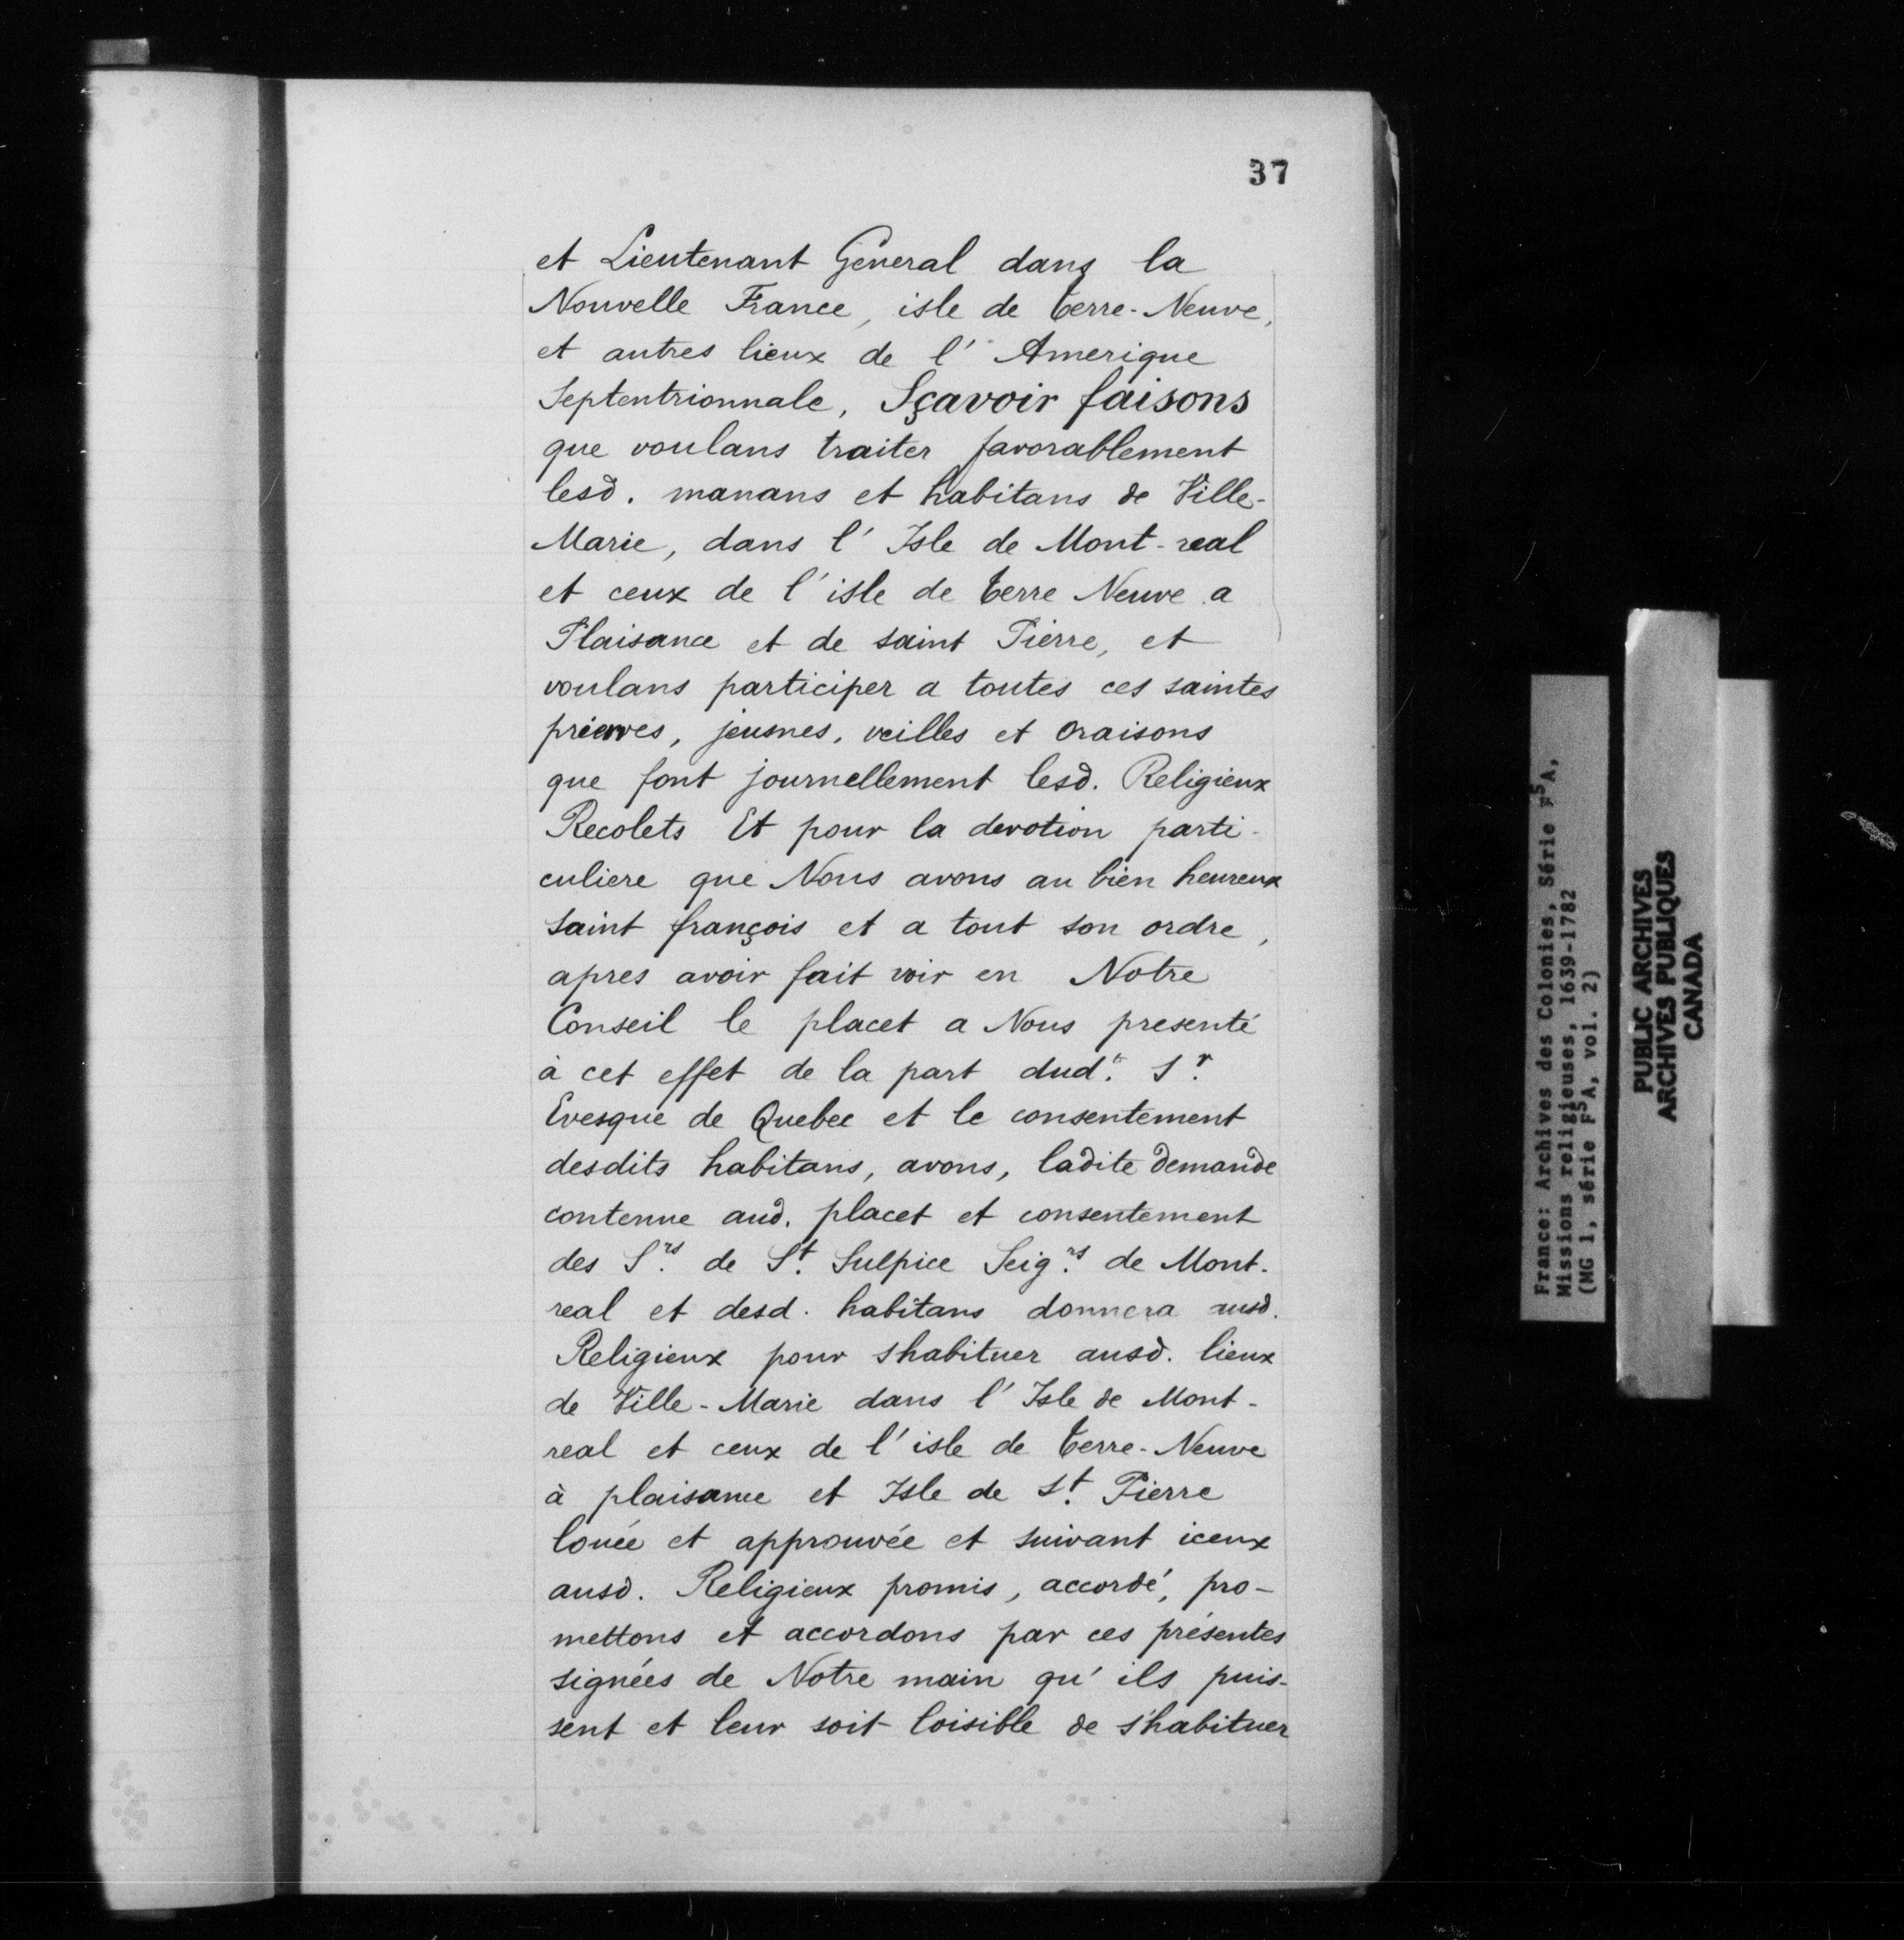 37
et Lieutenant General dans la
Nouvelle France, isle de terre-Neuve,
et autres lieux de l'Amerique
Septentrionnale, Sçavoir faisons
que voulans traiter favorablement
lesd. manans et habitans de Ville-
Marie, dans l'Isle de Mont-real
et ceux de l'isle de terre Neuve a
Plaisance et de saint Pierre, et
voulans participer a toutes ces saintes
prieres, jeusnes, veilles et oraisons
que font journellement lesd. Religieux
Recolets Et pour la devotion parti-
culiere que Nous avons au bien heureux
saint françois et a tout son ordre,
apres avoir fait voir en Notre
Conseil le placet a Nous presenté
à cet effet de la part dud.t Sr.
Evesque de Quebec et le consentement
desdits habitans, avons, ladite demande
contenue aud. placet et consentement
des Srs. de St. Sulpice Seigrs. de Mont-
real et desd. habitans donnera ausd.
Religieux pour shabituer ausd. lieux
de Ville-Marie dans l'Isle de Mont-
real et ceux de l'isle de terre-Neuve
à plaisance et Isle de St. Pierre
louée et approuvée et suivant iceux
ausd. Religieux promis, accordé, pro-
mettons et accordons par ces présentes
signées de Notre main qu'ils puis-
sent et leur soit loisible de s'habituer
France: Archives des Colonies, Série F5A,
Missions religieuses, 1639-1782
(MG 1, série F5A, vol. 2)
PUBLIC ARCHIVES
ARCHIVES PUBLIQUES
CANADA